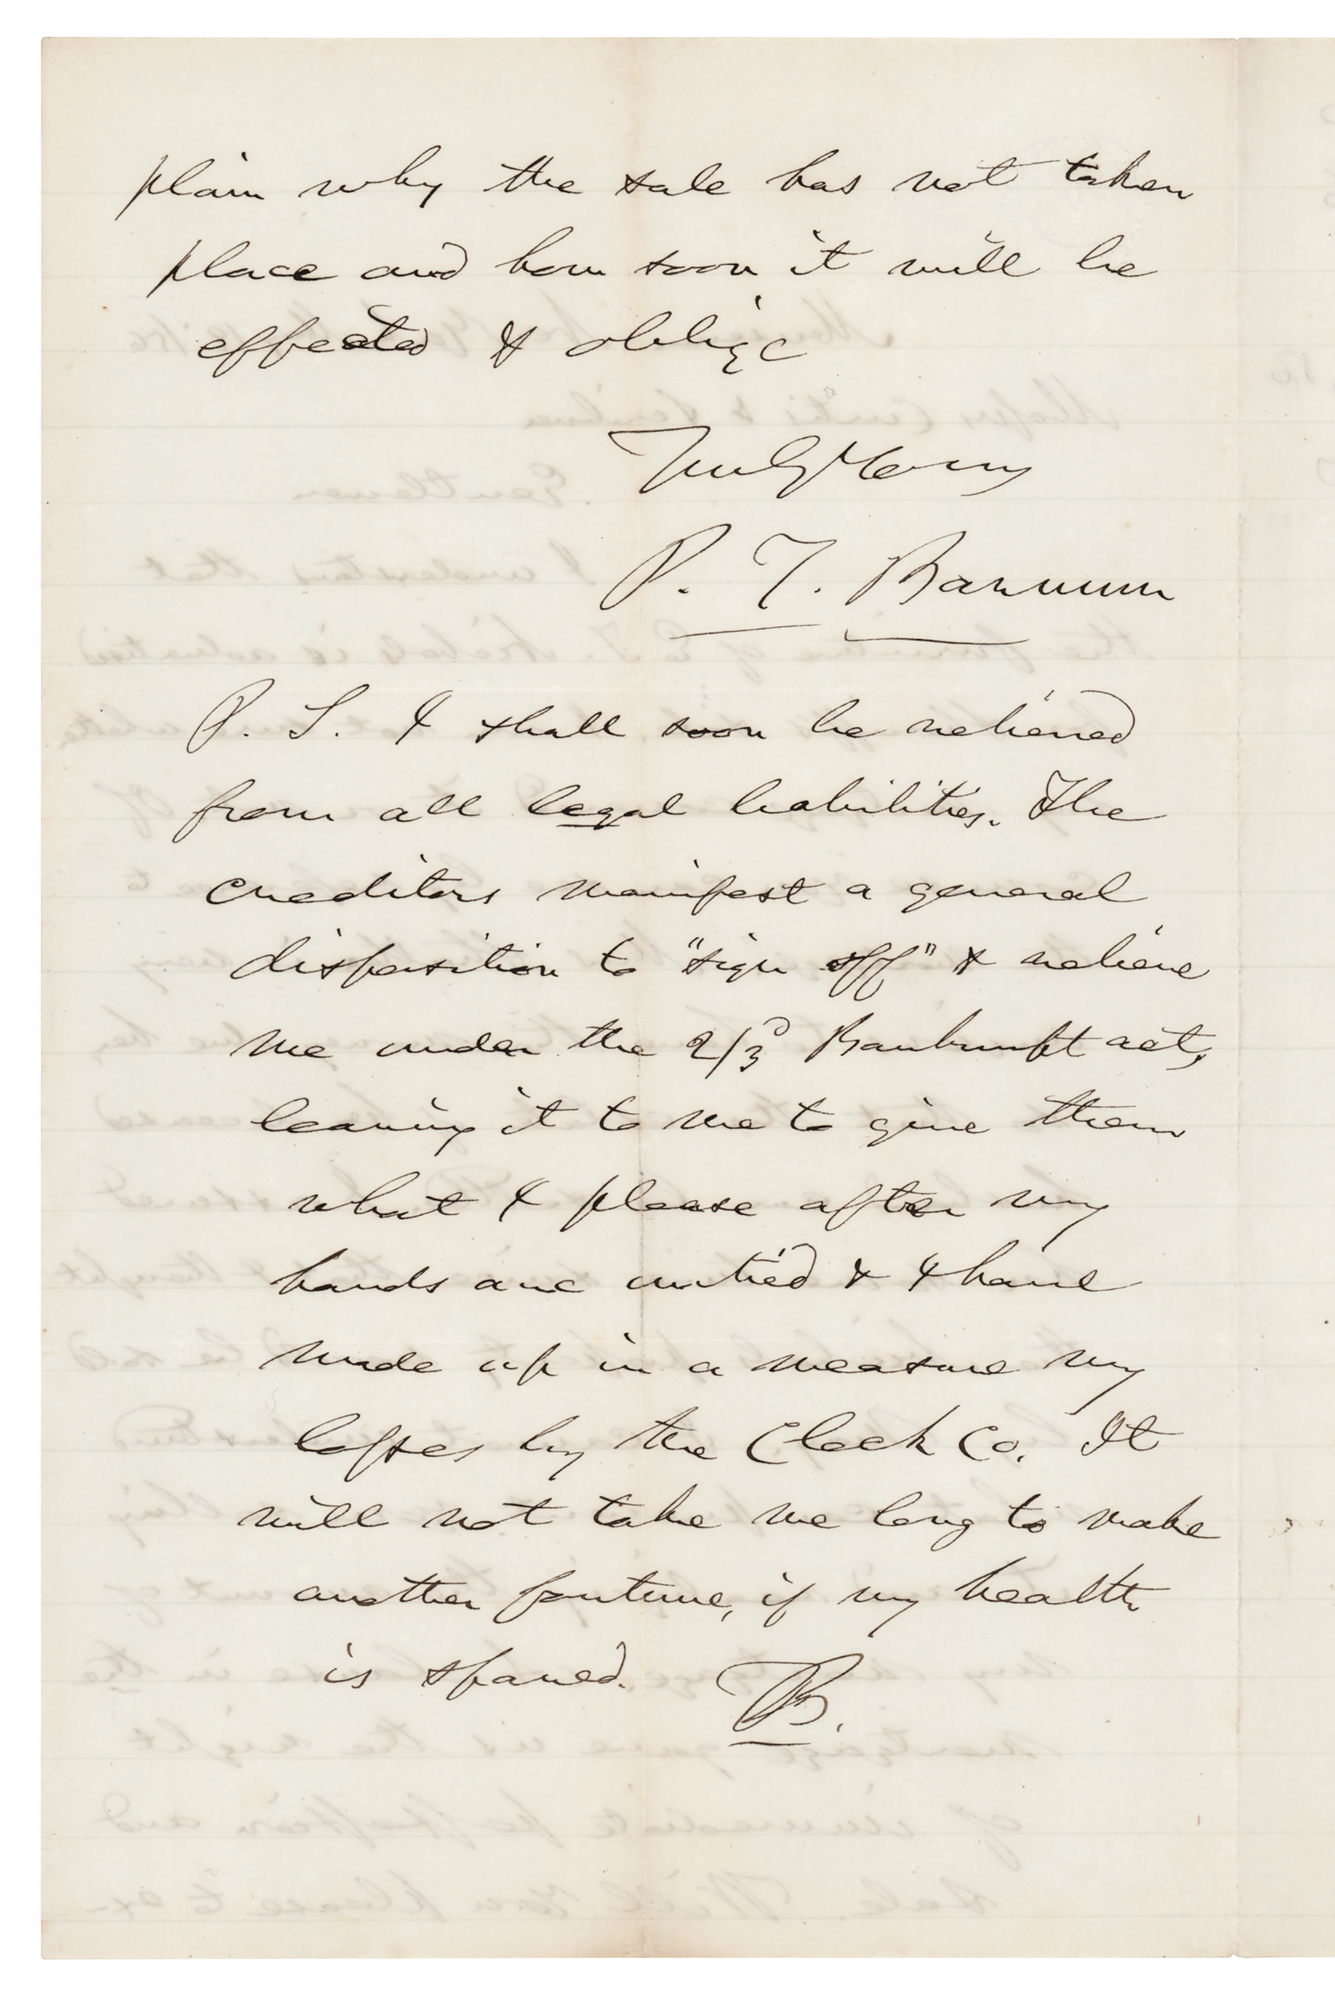 plain why the sale has not taken
place and how soon it will be
effected & oblige
Truly Yours
P. T. Barnum
P. S. I shall soon be relieved
from all legal liabilities. The
creditors manifest a general
disposition to "sign off" & relieve
me under the 2/3d Bankrupt act,
leaving it to me to give them
what I please after my
hands are untied & I have
made up in a measure my
losses by the Clock Co. It
will not take me long to make
another fortune, if my health
is spared.
B.